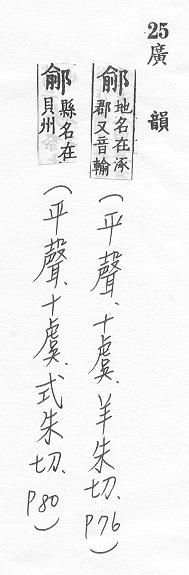 25廣韻
鄃地名在涿郡又音輸(平聲、十虞、羊朱切、P76)
鄃縣名在貝州(平聲、十虞、式朱切、P80)